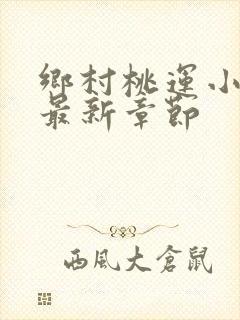 鄉村桃運小
最新章節
西風大倉鼠